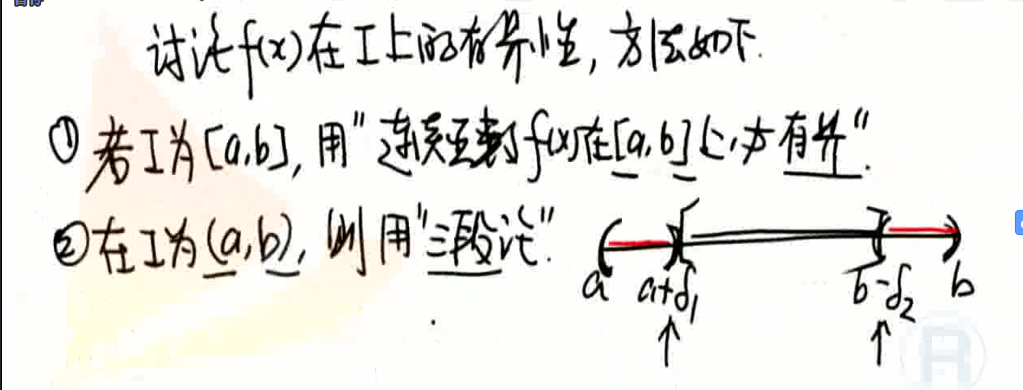 讨论f(x)在I上的有界性,方法如下.
① 若I为[a,b],用"连续函数f(x)在[a,b]上必有界".
② 在I为(a,b),则用"三段论".
a a+δ₁ b-δ₂ b